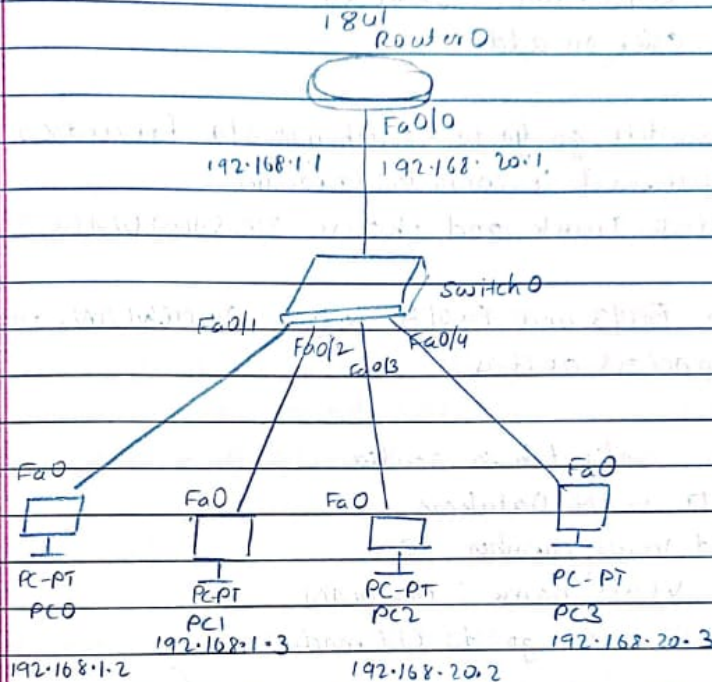 1841
Router0
Fa0/0
192.168.1.1 192.168.20.1
Switch0
Fa0/1
Fa0/2
Fa0/3
Fa0/4
Fa0
Fa0
Fa0
Fa0
PC-PT
PC0
192.168.1.2
PC-PT
PC1
192.168.1.3
PC-PT
PC2
192.168.20.2
PC-PT
PC3
192.168.20.3